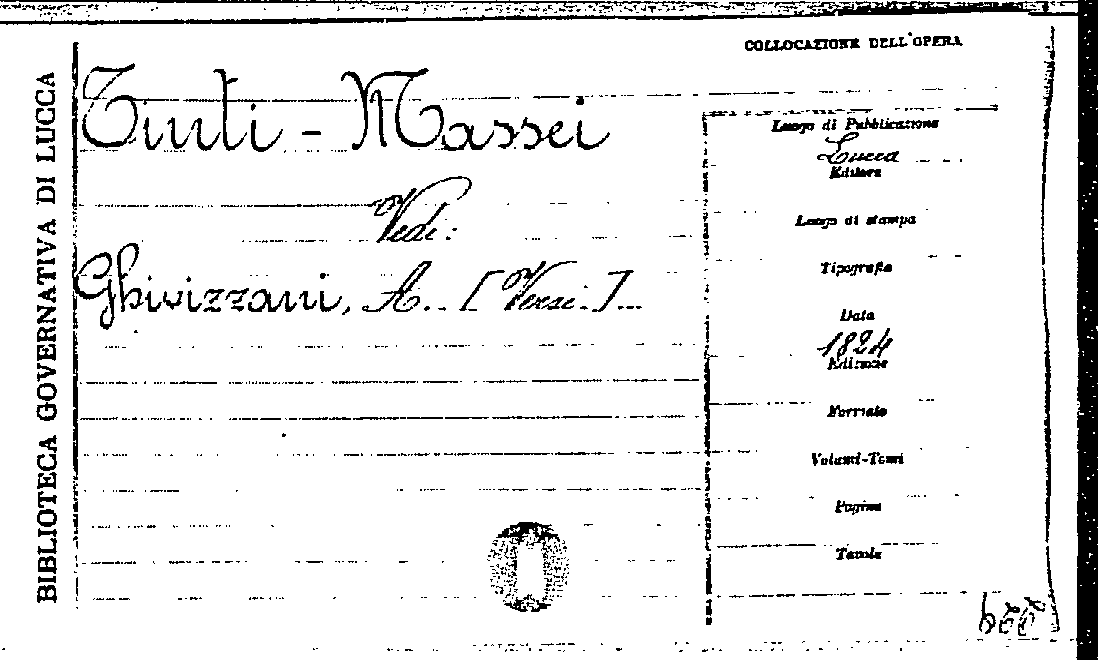 BIBLIOTECA GOVERNATIVA DI LUCCA
COLLOCAZIONE DELL'OPERA
Tinti - Massei
Vedi:
Ghivizzani, A.. [Versi.]...
Luogo di Pubblicazione
Lucca
Editore
Luogo di stampa
Tipografia
Data
1824
Edizione
Formato
Volumi-Tomi
Pagine
Tavole